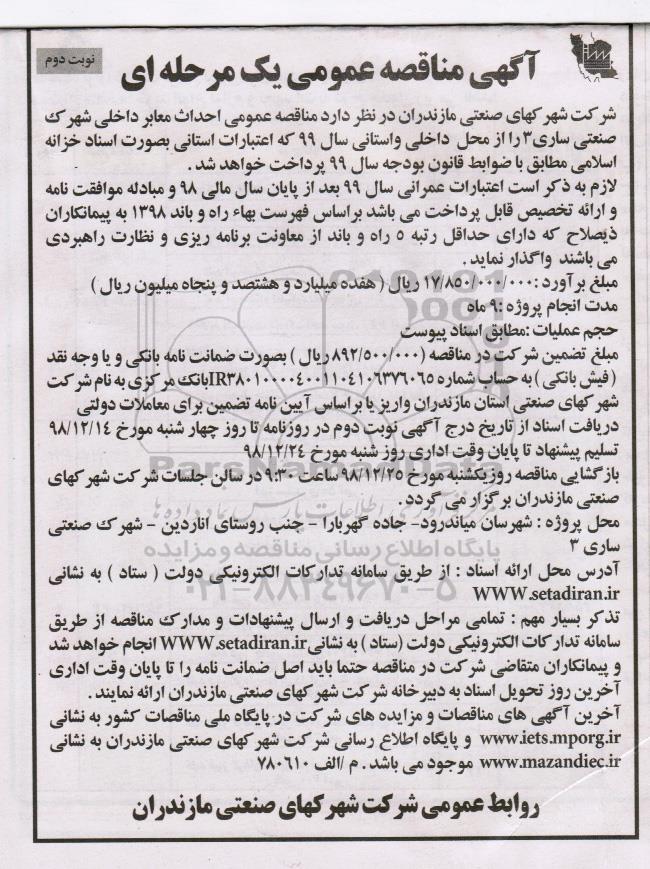 نوبت دوم
آگهی مناقصه عمومی یک مرحله ای
شرکت شهرکهای صنعتی مازندران در نظر دارد مناقصه عمومی احداث معابر داخلی شهرک
صنعتی ساری۳ را از محل داخلی واستانی سال ۹۹ که اعتبارات استانی بصورت اسناد خزانه
اسلامی مطابق با ضوابط قانون بودجه سال ۹۹ پرداخت خواهد شد .
لازم به ذکر است اعتبارات عمرانی سال ۹۹ بعد از پایان سال مالی ۹۸ و مبادله موافقت نامه
و ارائه تخصیص قابل پرداخت می باشد براساس فهرست بهاء راه و باند ۱۳۹۸ به پیمانکاران
ذیصلاح که دارای حداقل رتبه ۵ راه و باند از معاونت برنامه ریزی و نظارت راهبردی
می باشند واگذار نماید .
مبلغ برآورد :۱۷/۸۵۰/۰۰۰/۰۰۰ ریال ( هفده میلیارد و هشتصد و پنجاه میلیون ریال )
مدت انجام پروژه :۹ ماه
حجم عملیات :مطابق اسناد پیوست
مبلغ تضمین شرکت در مناقصه (۸۹۲/۵۰۰/۰۰۰ریال ) بصورت ضمانت نامه بانکی و یا وجه نقد
( فیش بانکی ) به حساب شماره IR۳۸۰۱۰۰۰۰۴۰۰۱۱۰۴۱۰۶۳۷۶۰۶۵بانک مرکزی به نام شرکت
شهرکهای صنعتی استان مازندران واریز یا براساس آیین نامه تضمین برای معاملات دولتی
دریافت اسناد از تاریخ درج آگهی نوبت دوم در روزنامه تا روز چهار شنبه مورخ ۹۸/۱۲/۱۴
تسلیم پیشنهاد تا پایان وقت اداری روز شنبه مورخ ۹۸/۱۲/۲۴
بازگشایی مناقصه روزیکشنبه مورخ ۹۸/۱۲/۲۵ ساعت ۹:۳۰ در سالن جلسات شرکت شهرکهای
صنعتی مازندران برگزار می گردد .
محل پروژه : شهرسان میاندرود- جاده گهربارا – جنب روستای اناردین – شهرک صنعتی
ساری ۳
آدرس محل ارائه اسناد : از طریق سامانه تدارکات الکترونیکی دولت ( ستاد ) به نشانی
WWW.setadiran.ir
تذکر بسیار مهم : تمامی مراحل دریافت و ارسال پیشنهادات و مدارک مناقصه از طریق
سامانه تدارکات الکترونیکی دولت (ستاد ) به نشانیWWW.setadiran.ir انجام خواهد شد
و پیمانکاران متقاضی شرکت در مناقصه حتما باید اصل ضمانت نامه را تا پایان وقت اداری
آخرین روز تحویل اسناد به دبیرخانه شرکت شهرکهای صنعتی مازندران ارائه نمایند .
آخرین آگهی های مناقصات و مزایده های شرکت در پایگاه ملی مناقصات کشور به نشانی
www.iets.mporg.ir و پایگاه اطلاع رسانی شرکت شهرکهای صنعتی مازندران به نشانی
www.mazandiec.ir موجود می باشد . م /الف ۷۸۰۶۱۰
روابط عمومی شرکت شهرکهای صنعتی مازندران
ParsNamadData
پایگاه اطلاع رسانی مناقصه و مزایده
۰۲۱-۸۸۳۴۹۶۷۰-۵